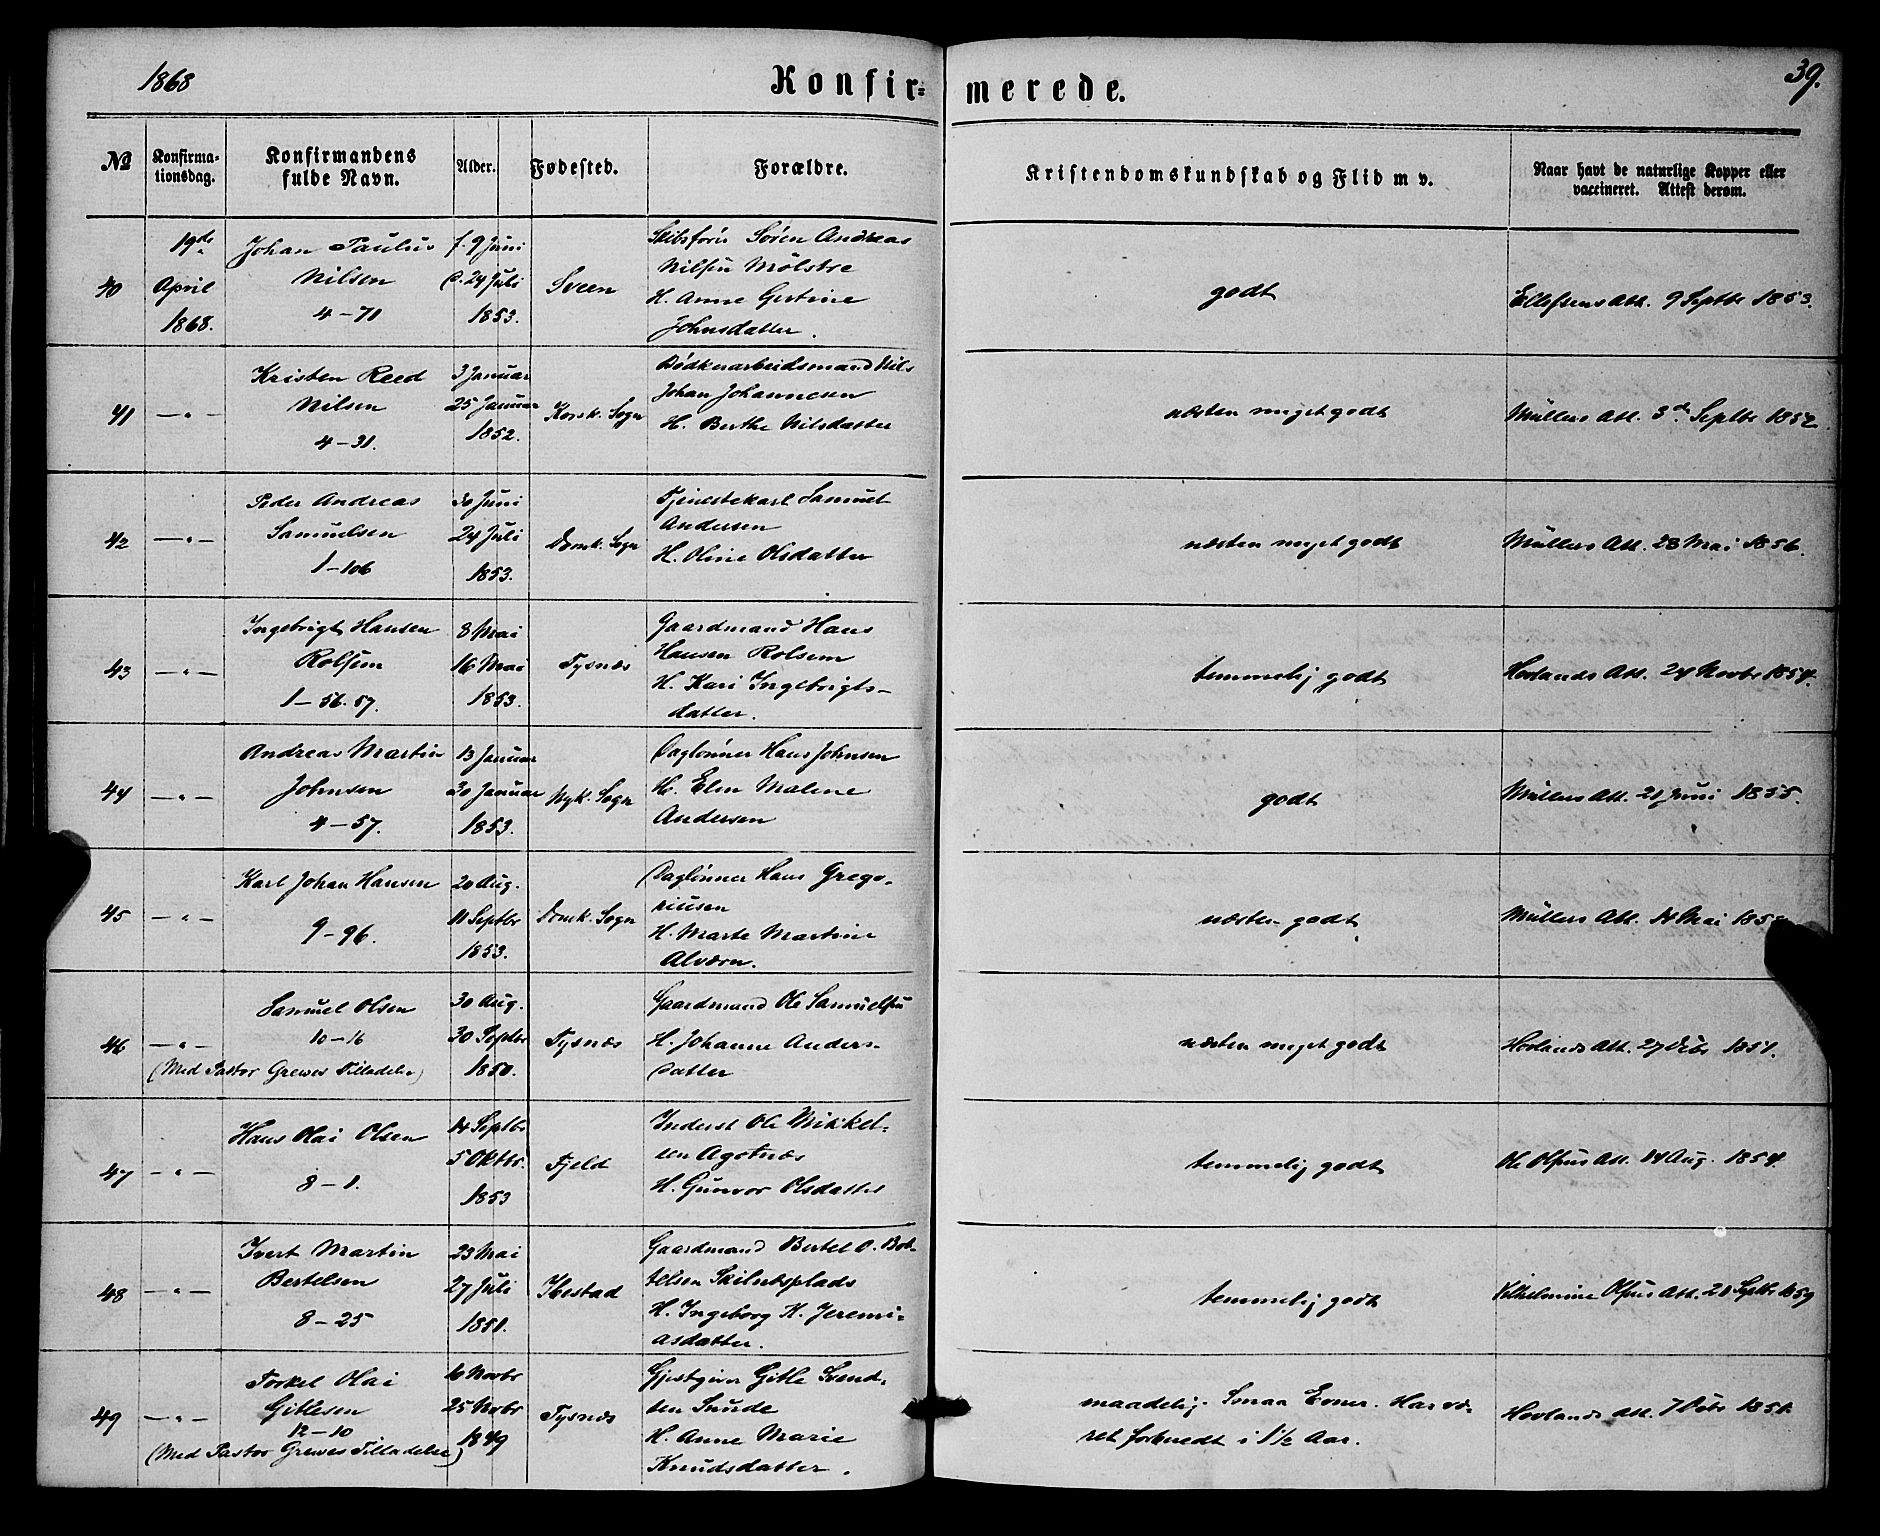 1868
Konfir-
merede.
39.
№
Konfirma-
tionsdag.
Konfirmandens
fulde Navn.
Alder.
Fødested.
Forældre.
Kristendomskundskab og Flid m v.
Naar havt de naturlige Kopper eller
vaccineret. Attest derom.
40
19de
April
1868.
Johan Paulus
Nilsen
4-71
f. 9 Juni
d. 24 Juli
1853.
Sveen
Skibsfører Sören Andreas
Nilsen Mölstre
H. Anne Gertine
Johnsdatter.
godt
Ellefsens Att. 9 Septbr 1853.
41
—„—
Kristen Reed
Nilsen
4-31.
3 Januar
25 Januar
1852.
Korsk. Sogn
Bødkerarbeidsmand Nils
Johan Johannesen
H. Berthe Nilsdatter
næsten meget godt
Müllers Att. 3de Septbr 1852.
42
—„—
Peder Andreas
Samuelsen
1-106
30 Juni
24 Juli
1853.
Domk. Sogn
Tjenestekarl Samuel
Andersen
H. Oline Olsdatter
næsten meget godt
Müllers Att. 28 Mai 1856.
43
—„—
Ingebrigt Hansen
Rolsem
1-56.57.
8 Mai
16 Mai
1853.
Tysnæs
Gaardmand Hans
Hansen Rolsem
H. Kari Ingebrigts-
datter.
temmelig godt
Hovlands Att. 24 Novbr 1854.
44
—„—
Andreas Martin
Johnsen
4-57.
13 Januar
30 Januar
1853.
Nyk. Sogn
Daglønner Hans Johnsen
H. Elen Malene
Andersen
godt
Müllers Att. 21 Juni 1855.
45
—„—
Karl Johan Hansen
9-96.
20 Aug.
11 Septbr
1853.
Domk. Sogn
Daglønner Hans Grego-
riusen
H. Marte Martine
Alværn.
næsten godt
Müllers Att. 14 Mai
46
—„—
Samuel Olsen
10-16
(Med Pastor Grewes Tilladelse)
30 Aug.
30 Septbr
1850.
Tysnæs
Gaardmand Ole Samuelsen
H. Johanne Anders-
datter
næsten meget godt
Hovlands Att. 27 Debr 1851.
47
—„—
Hans Olai Olsen
8-1.
14 Septbr
5 Oktbr.
1853
Fjeld
Inderst Ole Mikkel-
sen Agotnæs
H. Gunvor Olsdatter
temmelig godt
Ole Olsens Att. 14 Aug. 1854.
48
—„—
Ivert Martin
Bertelsen
8-25
23 Mai
27 Juli
1851.
Ibestad
Gaardmand Bertel O.
H. Ingeborg H. Jeremi-
asdatter.
temmelig godt
Vilhelmine Olsens Att. 21 Septbr 1859
49
—„—
Torkel Olai
Gitlesen
12-10
(Med Pastor Grewes Tilladelse)
16 Novbr
25 Novbr
1849
Tysnæs
Gjestgiver Gitle Svend-
sen
H. Anne Marie
Knudsdatter.
maadelig. Smaa Evner. Har væ-
ret forberedt i 1½ Aar.
Hovlands Att. 7 Debr 1851.